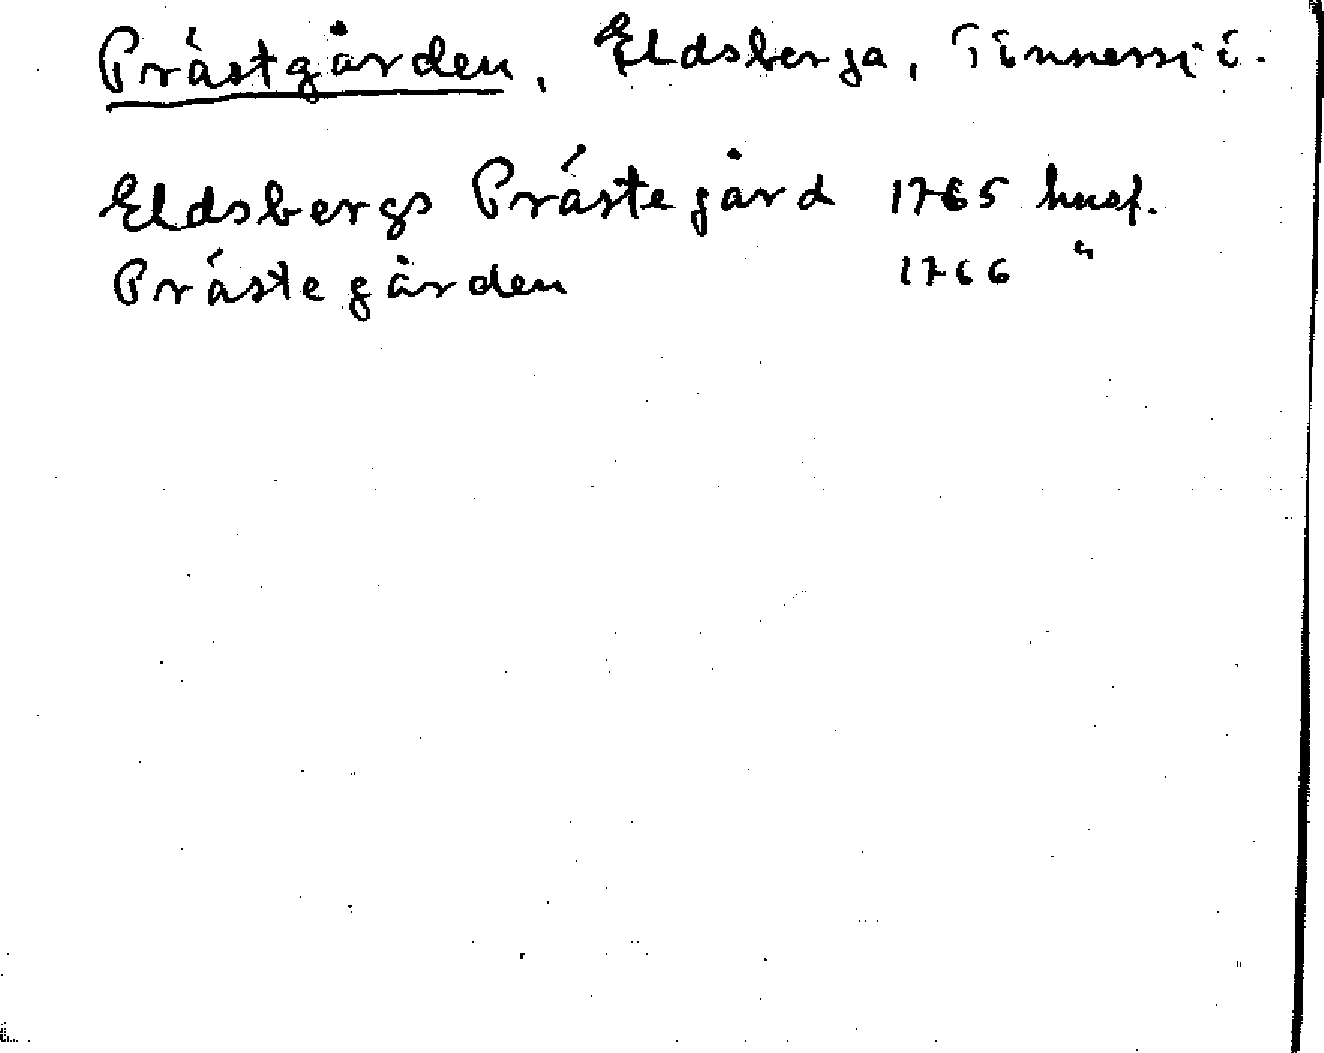 Prästgården, Eldsberga, Tönnersjö.
Eldsbergs Prästegård 1765 husf.
Prästegården 1766 "